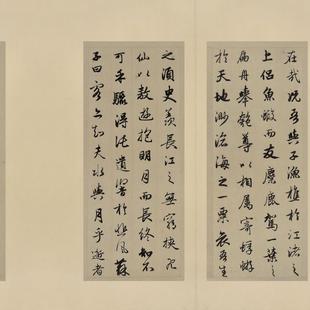 在哉况吾與子漁樵於江渚之
上侣魚蝦而友麋鹿駕一葉之
扁舟舉匏尊以相屬寄蜉蝣
於天地渺滄海之一粟哀吾生
之須臾羨長江之無窮挾飛
仙以遨遊抱明月而長終知不
可乎驟得託遺響於悲風蘇
子曰客亦知夫水與月乎逝者